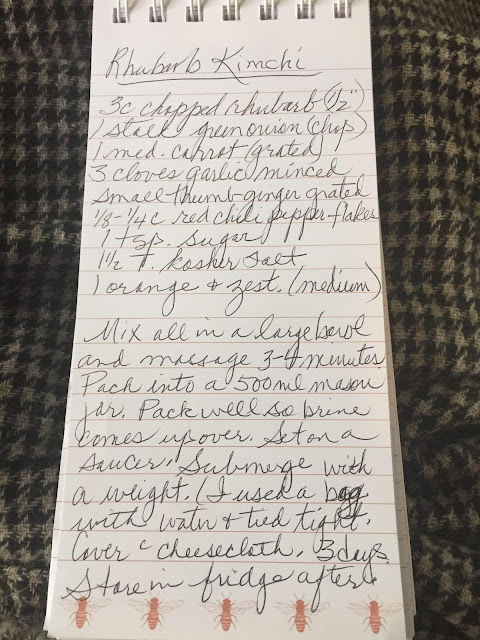 Rhubarb Kimchi
3c chopped rhubarb (1/2")
1 stalk green onion (chop)
1 med. carrot (grated)
3 cloves garlic minced
small thumb ginger grated
1/8-1/4 c red chili pepper flakes
1 tsp. sugar
1 1/2 T. kosher salt
1 orange & zest. (medium)
Mix all in a large bowl
and massage 3-4 minutes
Pack into a 500ml mason
jar. Pack well so brine
comes up over. Set on a
saucer. Submerge with
a weight. (I used a bag
with water & tied tight.
Cover c cheesecloth. 3 days.
Store in fridge after.